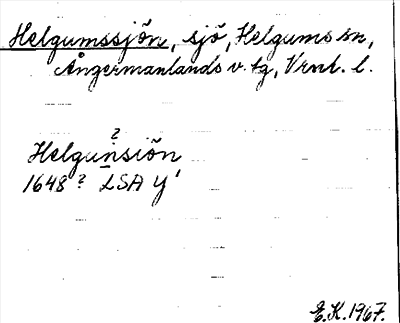 Helgumssjön, sjö, Helgums sn,
Ångermanlands v. tg, Vrnl. l.
?
Helgunsiön
1648? LSA Y¹
E.K. 1967.